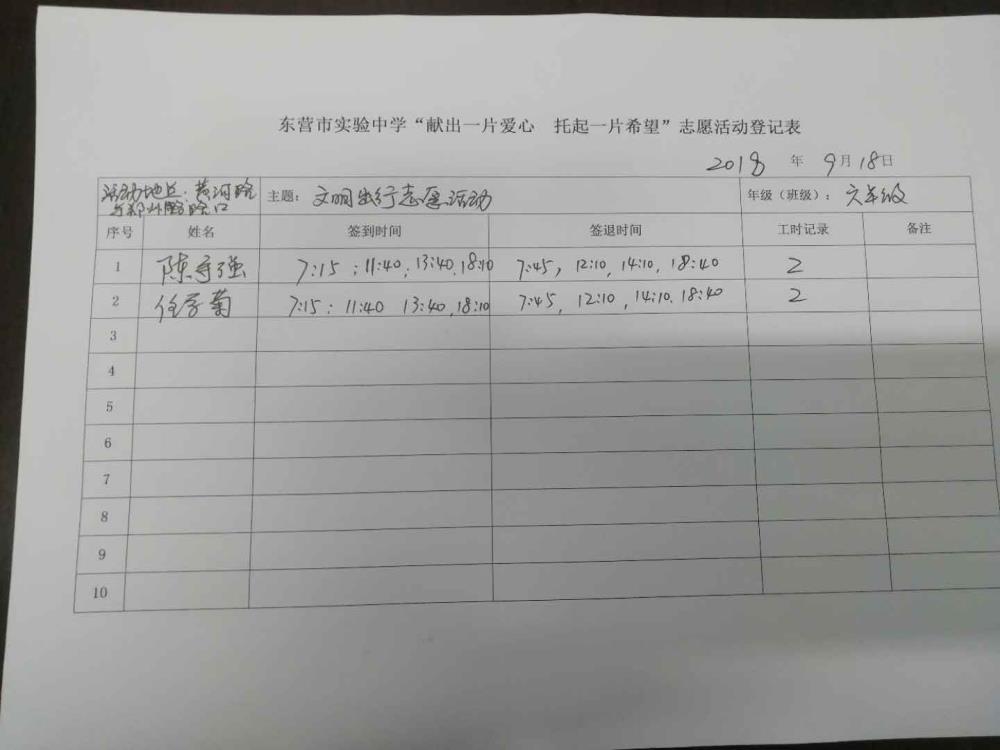 东营市实验中学“献出一片爱心 托起一片希望”志愿活动登记表
2018 年 9月18日
活动地点:黄河路与郑州路路口 主题: 文明出行志愿活动 年级(班级): 六年级
序号 姓名 签到时间 签退时间 工时记录 备注
1 陈守强 7:15;11:40,13:40,18:10 7:45,12:10,14:10,18:40 2
2 任学菊 7:15;11:40 13:40,18:10 7:45,12:10,14:10,18:40 2
3
4
5
6
7
8
9
10